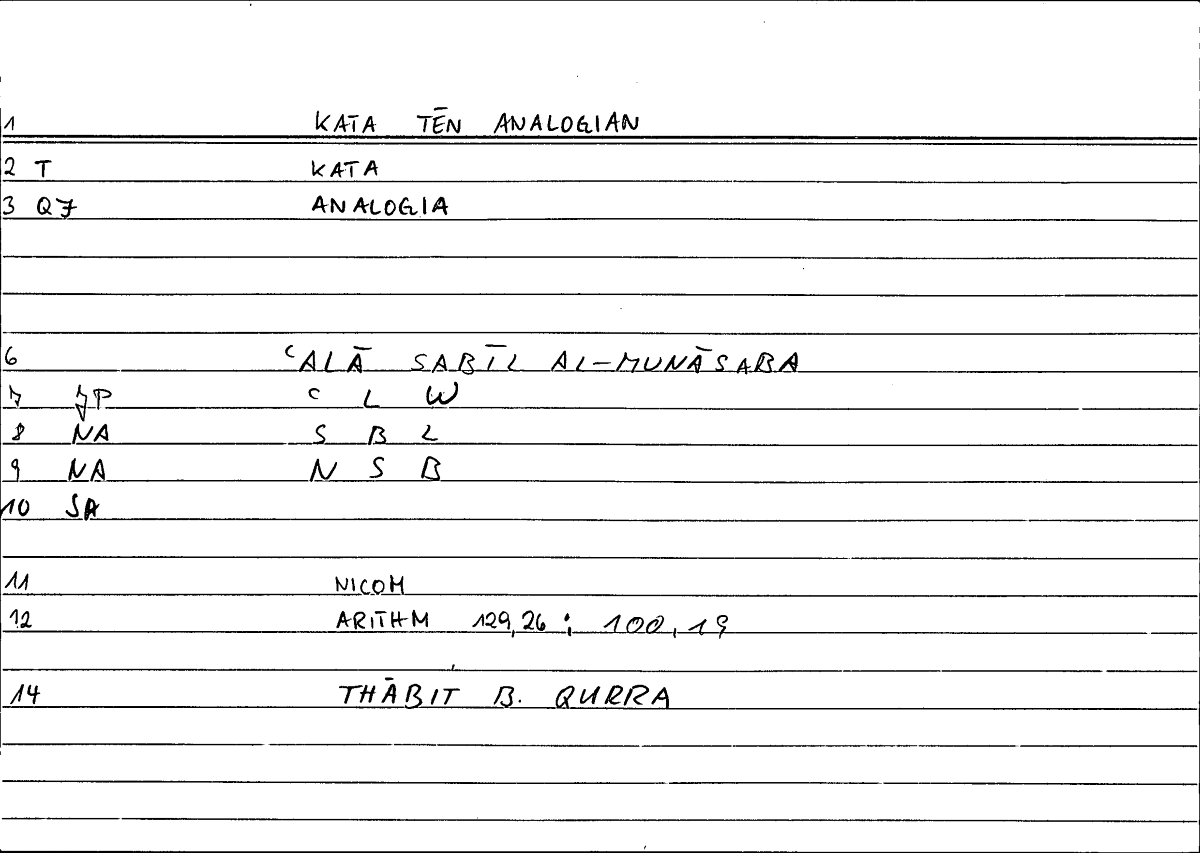 1 KATA TĒN ANALOGIAN
2 T KATA
3 QJ ANALOGIA
6 ʿALĀ SABĪL AL-MUNĀSABA
7 JP ʿ L W
8 NA S B L
9 NA N S B
10 SA
11 NICOM
12 ARITHM 129,26 ; 100,19
14 THĀBIT B. QURRA